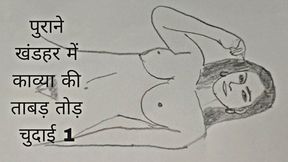 पुराने
खंडहर में
काव्या की
ताबड़ तोड़
चुदाई 1